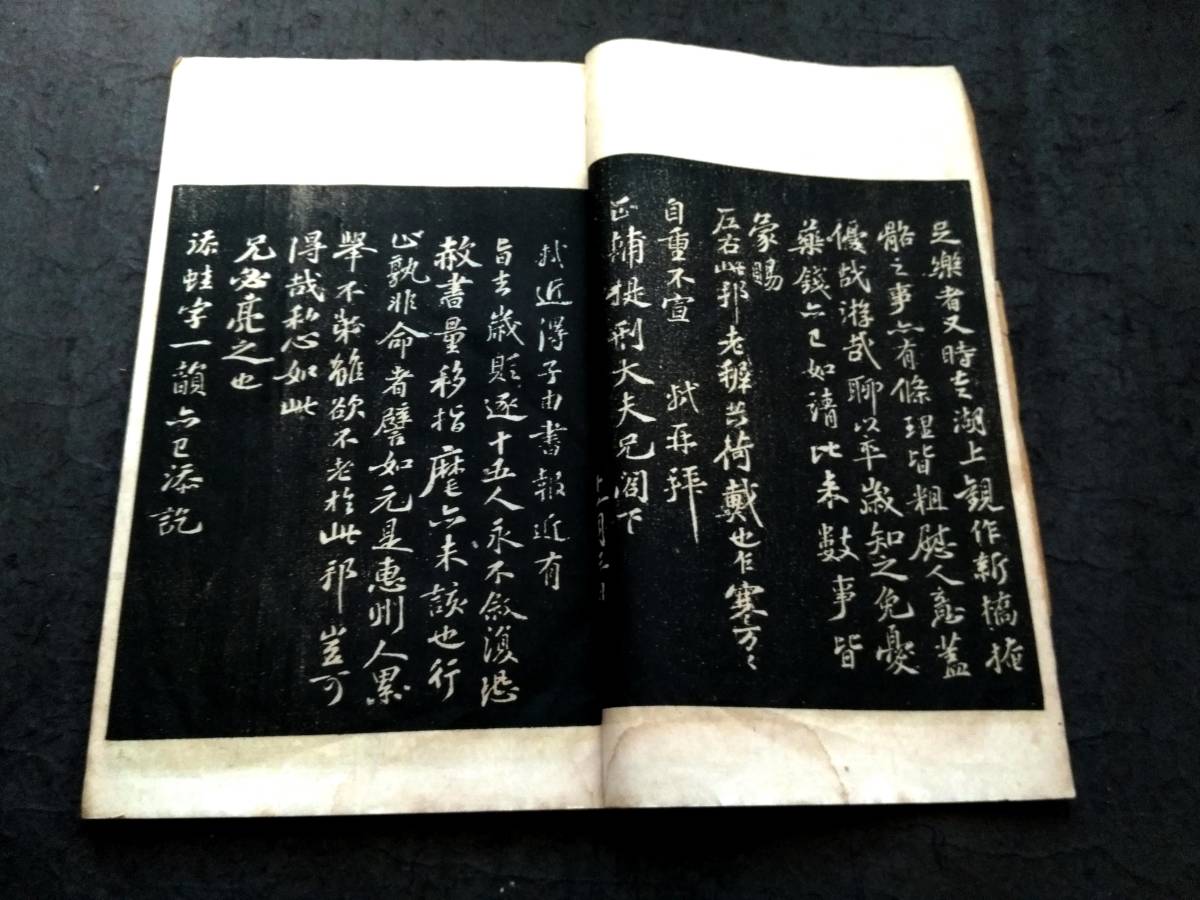 足樂者又時走湖上觀作新橋掩
骼之事亦有條理皆粗慰人意蓋
優哉游哉聊以卒歲知之免憂
藥錢亦已如請比來數事皆
蒙賜
左右此邦老稺共荷戴也乍寒萬〻
自重不宣 軾再拜
正輔提刑大夫兄閣下
十一月
軾近得子由書報近有
旨去歲貶逐十五人永不敘復恐
赦書量移指麾亦未該也行
止孰非命者譬如元是惠州人累
舉不第雖欲不老於此邦豈可
得哉私心如此
兄必亮之也
添蛙字一韻亦已添訖